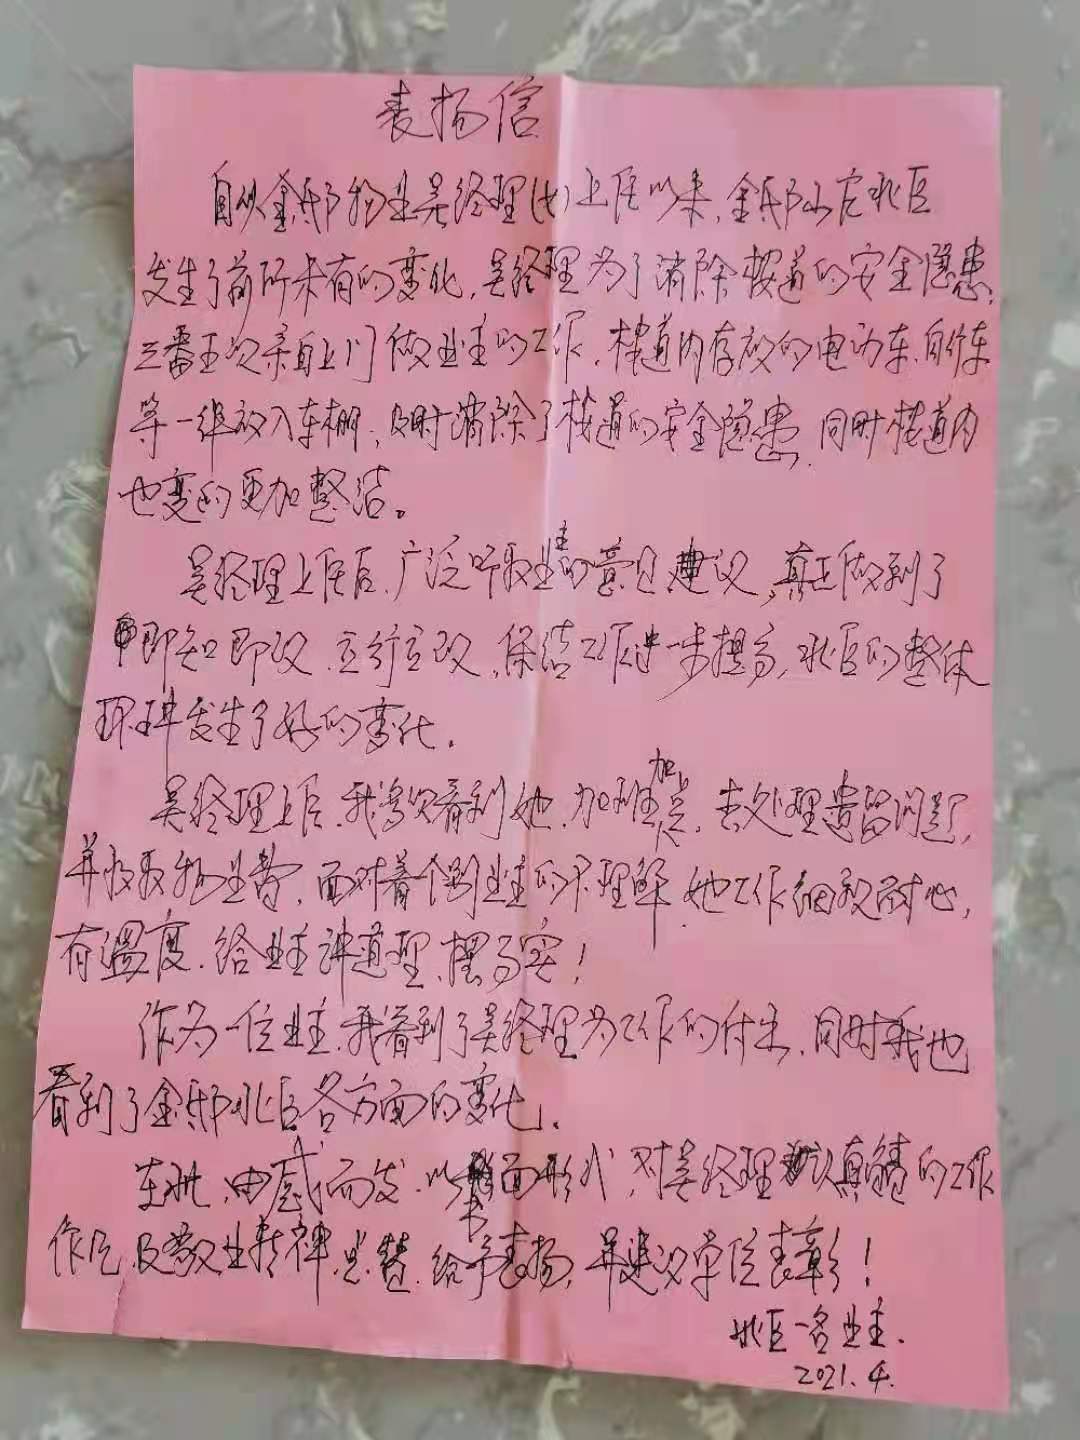 表扬信
自从金邸物业吴经理(女)上任以来,金邸山庄北区
发生了前所未有的变化,吴经理为了消除楼道的安全隐患,
三番五次亲自上门做业主的工作,楼道内存放的电动车、自行车
等一律放入车棚,及时消除了楼道的安全隐患,同时楼道内
也变的更加整洁。
吴经理上任后,广泛听取业主的意见建议,真正做到了
即知即改,立行立改,保洁工作进一步提高,北区的整体
环境发生了好的变化。
吴经理上任,我多次看到她,加班加点,去处理遗留问题,
并收取物业费,面对着个别业主的不理解,她工作细致耐心,
有温度,给业主讲道理、摆事实!
作为一位业主,我看到了吴经理为工作的付出,同时我也
看到了金邸北区各方面的变化。
在此,由感而发,以书面形式,对吴经理认真负责的工作
作风及敬业精神点赞,给予表扬,并建议单位表彰!
北区一名业主.
2021.4.